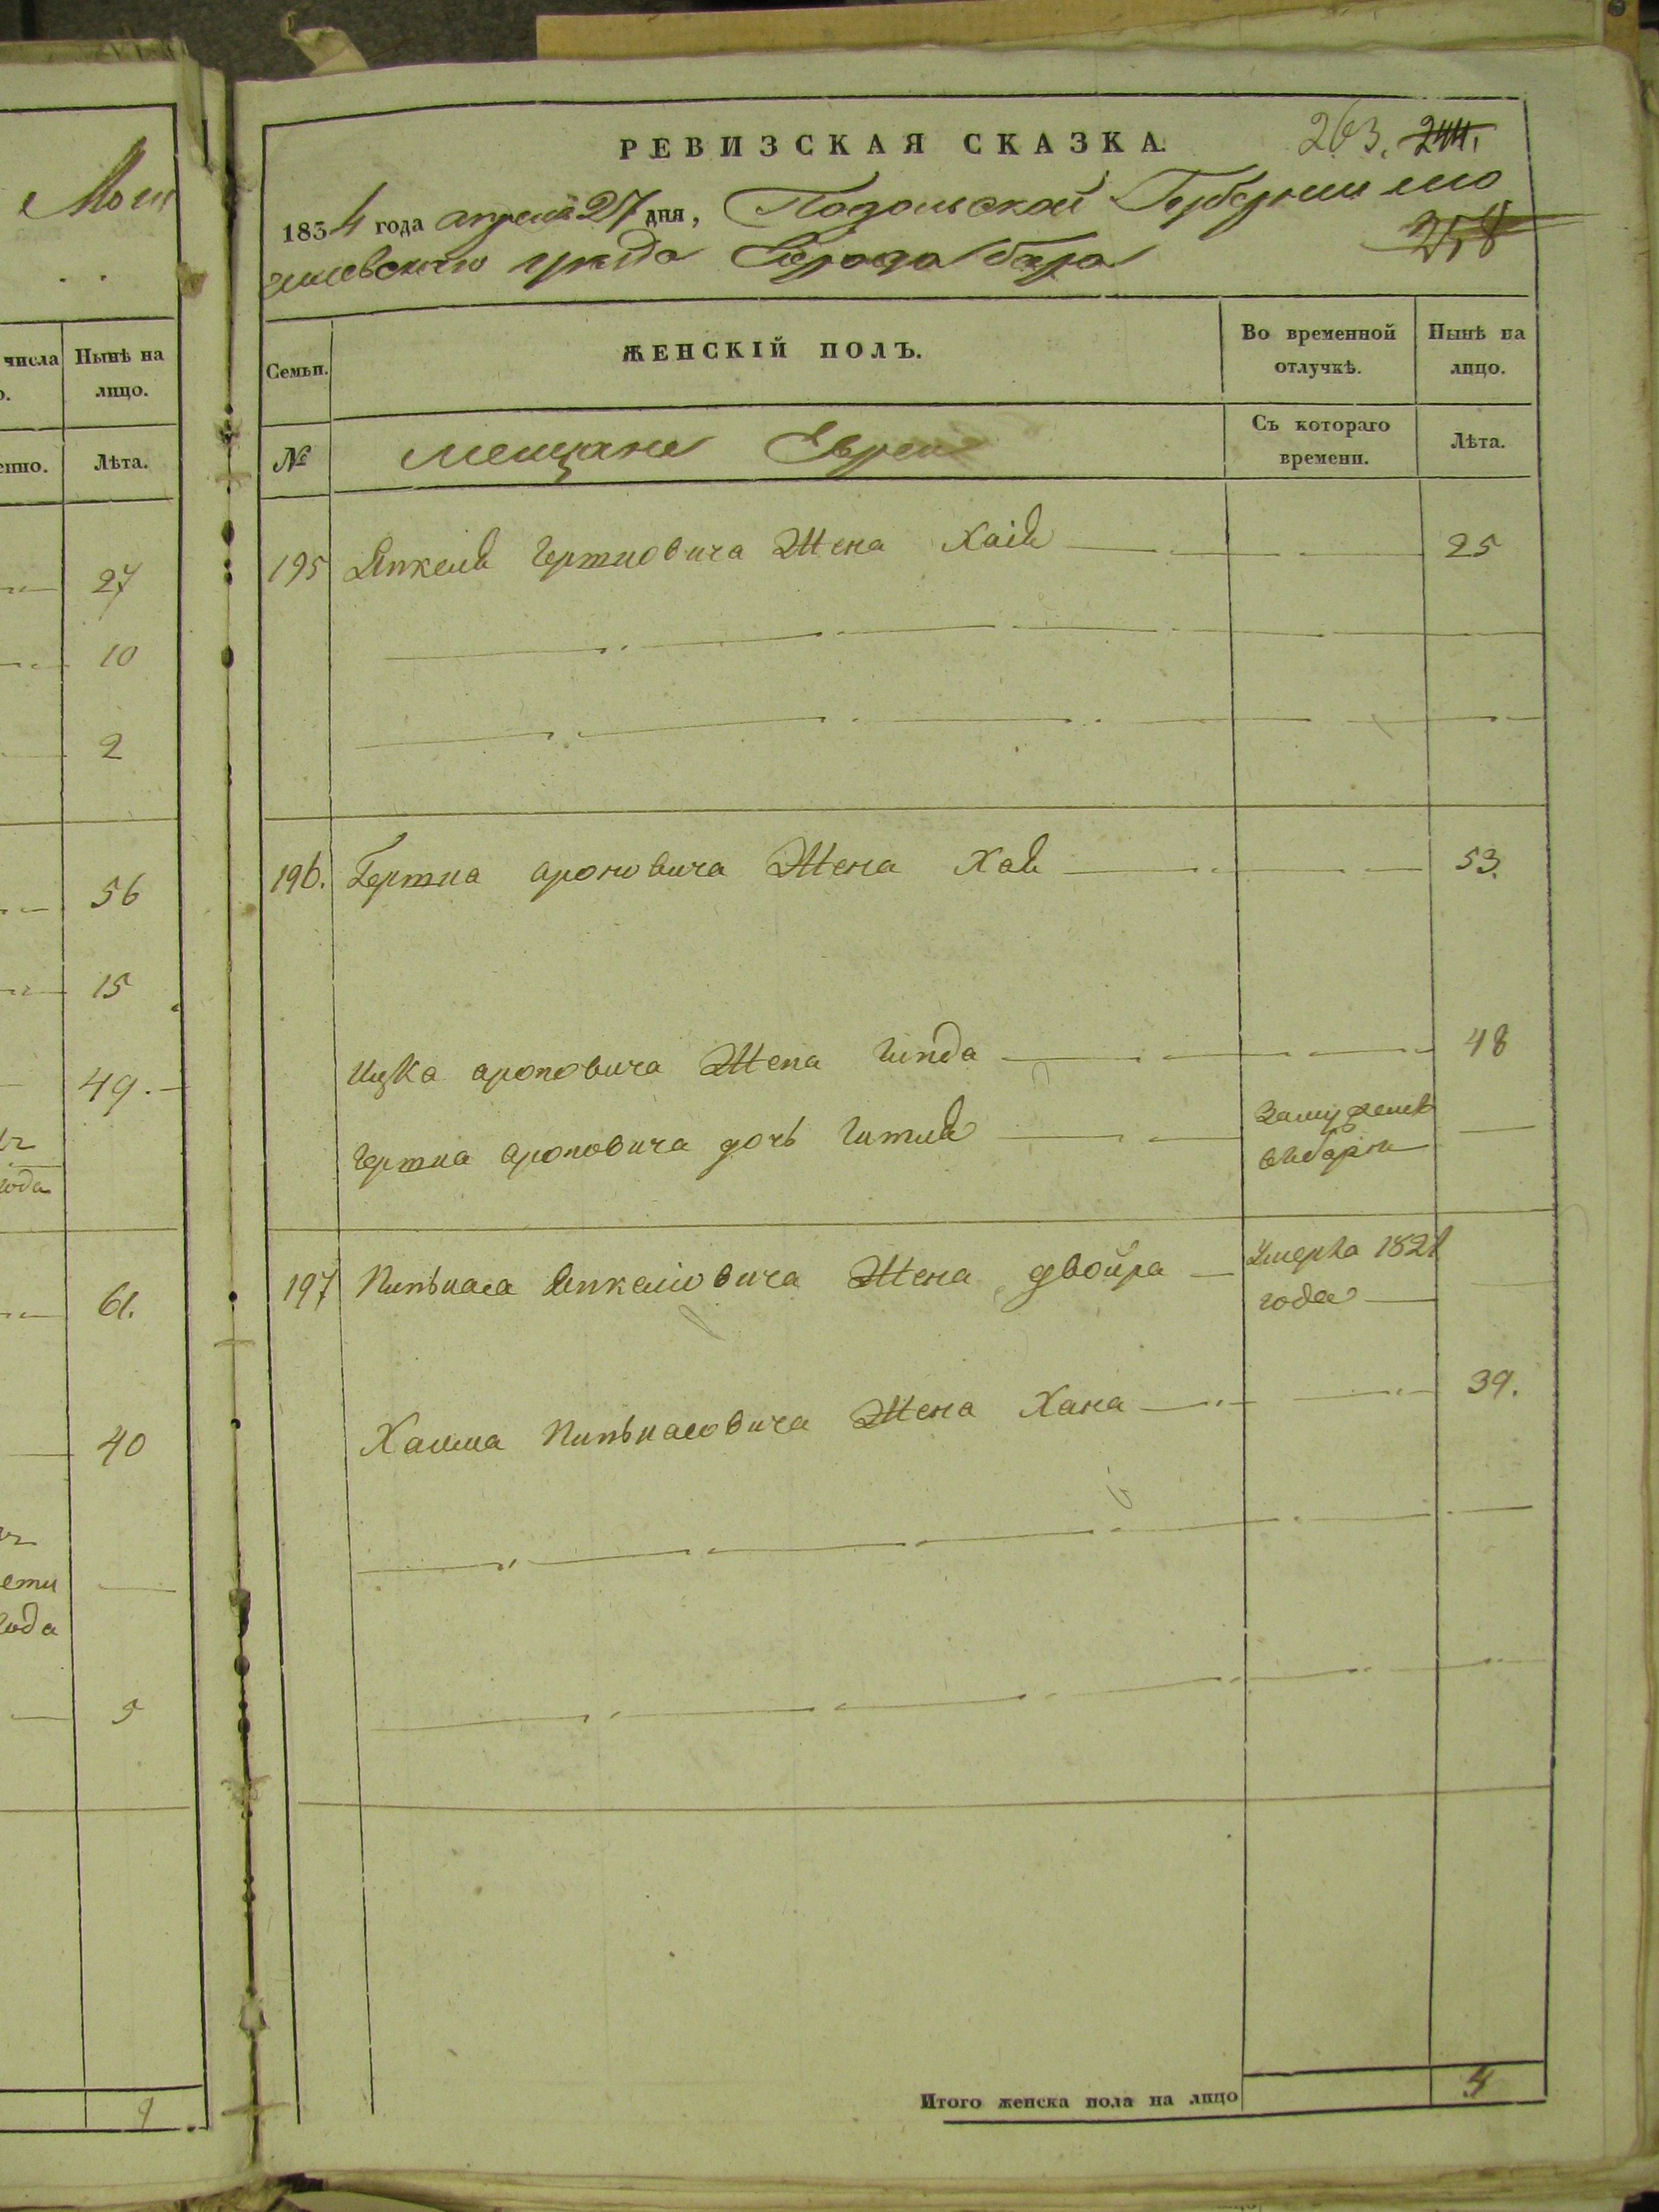 Мои
числа
Нынѣ на
лицо.
Лѣта.
27
10
2
56
15
49.
года
61.
40
года
5
9
РЕВИЗСКАЯ СКАЗКА.
263. 244.
1834 года апреля 27 дня, Подольской Губернии мо
258
гилевского уезда Города бара
Семьи.
ЖЕНСКІЙ ПОЛЪ.
Во временной
отлучкѣ.
Нынѣ на
лицо.
№
мещане Евреи
Съ котораго
времени.
Лѣта.
195 Янкеля Гершковича Жена Хая 25
196. Гершка ароновича Жена Хая 53.
Ицка ароновича Жена Гинда 48
Гершка ароновича дочь Гитля
Замужем
197 Пинькаса Янкелевича Жена двойра Умерла 1821
года
Хаима Пинькасовича Жена Хана 39.
Итого женска пола на лицо 4